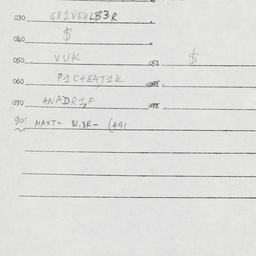 030 G81VE4LB3R
040 $
050 VUK 051 $
060 P1C+E4T1K
070 ANADR1,F
901 MAXT- BI.3R- (491